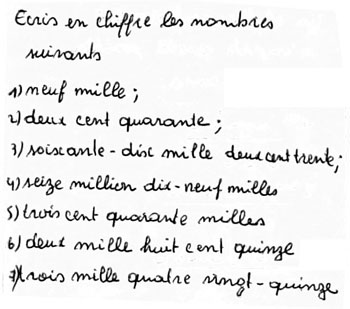 Ecris en chiffre les nombres
suivants
1) neuf mille ;
2) deux cent quarante ;
3) soixante-dix mille deux cent trente ;
4) seize million dix-neuf milles
5) trois cent quarante milles
6) deux mille huit cent quinze
7) trois mille quatre vingt-quinze